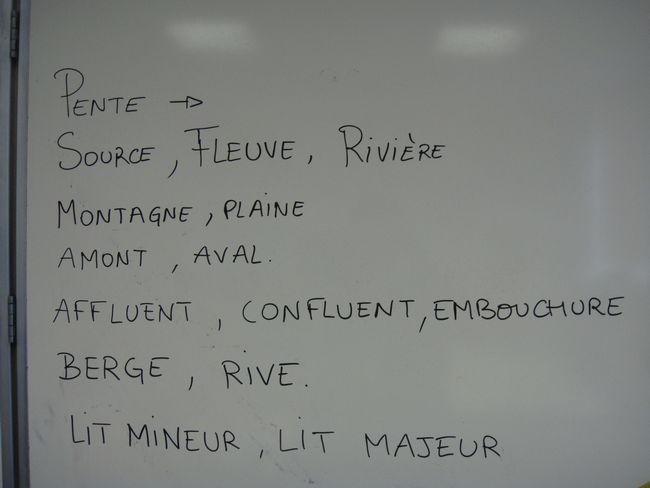 PENTE →
SOURCE, FLEUVE, RIVIÈRE
MONTAGNE, PLAINE
AMONT, AVAL.
AFFLUENT, CONFLUENT, EMBOUCHURE
BERGE, RIVE.
LIT MINEUR, LIT MAJEUR